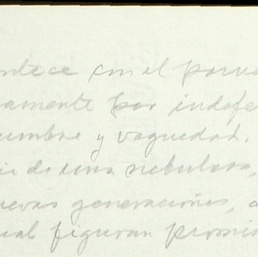 ontece con el porve
amente por indefe
umbre y vaguedad.
ie de una nebulosa,
uevas generaciones, a
ual figuran promi